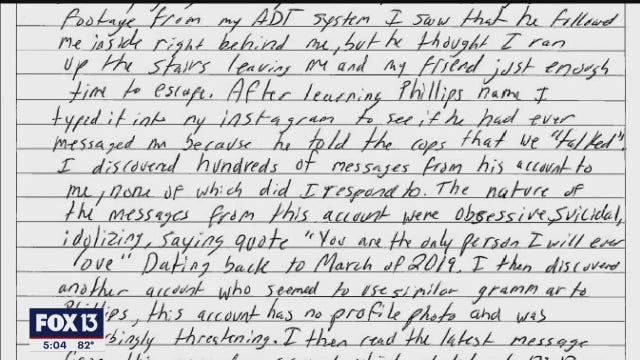 footage from my ADT system I saw that he followed
me inside right behind me, but he thought I ran
up the stairs leaving me and my friend just enough
time to escape. After learning Phillips name I
typed it into my instagram to see if he had ever
messaged me because he told the cops that we "talked".
I discovered hundreds of messages from his account to
me, none of which did I respond to. The nature of
the messages from this account were obsessive, suicidal,
idolizing, saying quote "You are the only person I will ever
love" Dating back to March of 2019. I then discovered
another account who seemed to use similar grammar to
Phillips, this account has no profile photo and was
threatening. I then read the latest message
FOX 13
5:04 82°